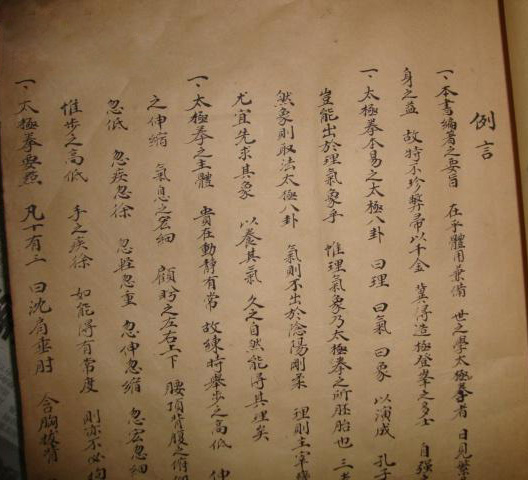 例言
一、本書編著之要旨 在乎體用兼備 世之學太極拳者 日見繁
身之益 故特不珍弊帚以千金 冀得造極登峯之多士 自強
一、太極拳本易之太極八卦 曰理 曰氣 曰象 以演成 孔子
豈能出於理氣象乎 惟理氣象乃太極拳之所胚胎也 三
然象則取法太極八卦 氣則不出於陰陽剛柔 理則主宰
尤宜先求其象 以養其氣 久之自然能得其理矣
一、太極拳之主體 貴在動靜有常 故練時舉步之高低 伸
之伸縮 氣息之宏細 顧盼之左右上下 腰頂背腹之俯仰
忽低 忽疾忽徐 忽輕忽重 忽伸忽縮 忽宏忽細
惟步之高低 手之疾徐 如能得有常度 則亦不必拘
一、太極拳要點 凡十有三 曰沈肩垂肘 含胸拔背